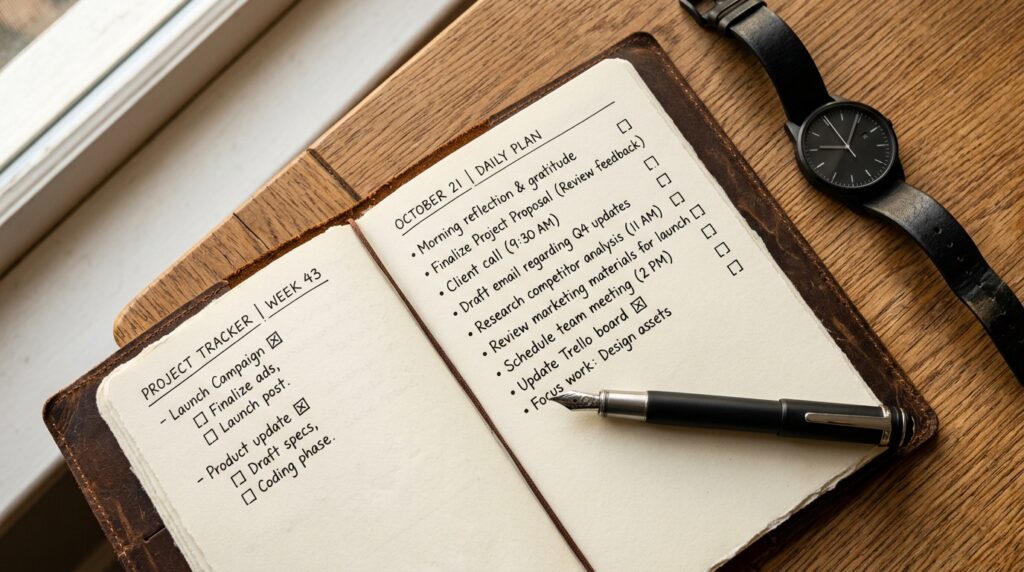 PROJECT TRACKER | WEEK 43
- Launch Campaign ☒
☐ Finalize ads,
☐ Launch post.
- Product update ☒
☐ Draft specs,
☐ Coding phase.
OCTOBER 21 | DAILY PLAN
• Morning reflection & gratitude ☐
• Finalize Project Proposal (Review feedback)
• Client call (9:30 AM) ☐
• Draft email regarding Q4 updates ☐
• Research competitor analysis (11 AM) ☐
• Review marketing materials for launch ☐
• Schedule team meeting (2 PM) ☐
• Update Trello board ☒ ☐
• Focus work: Design assets ☐